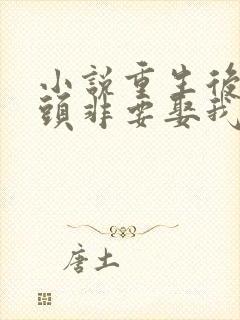 小說重生後
頭非要娶我
唐土